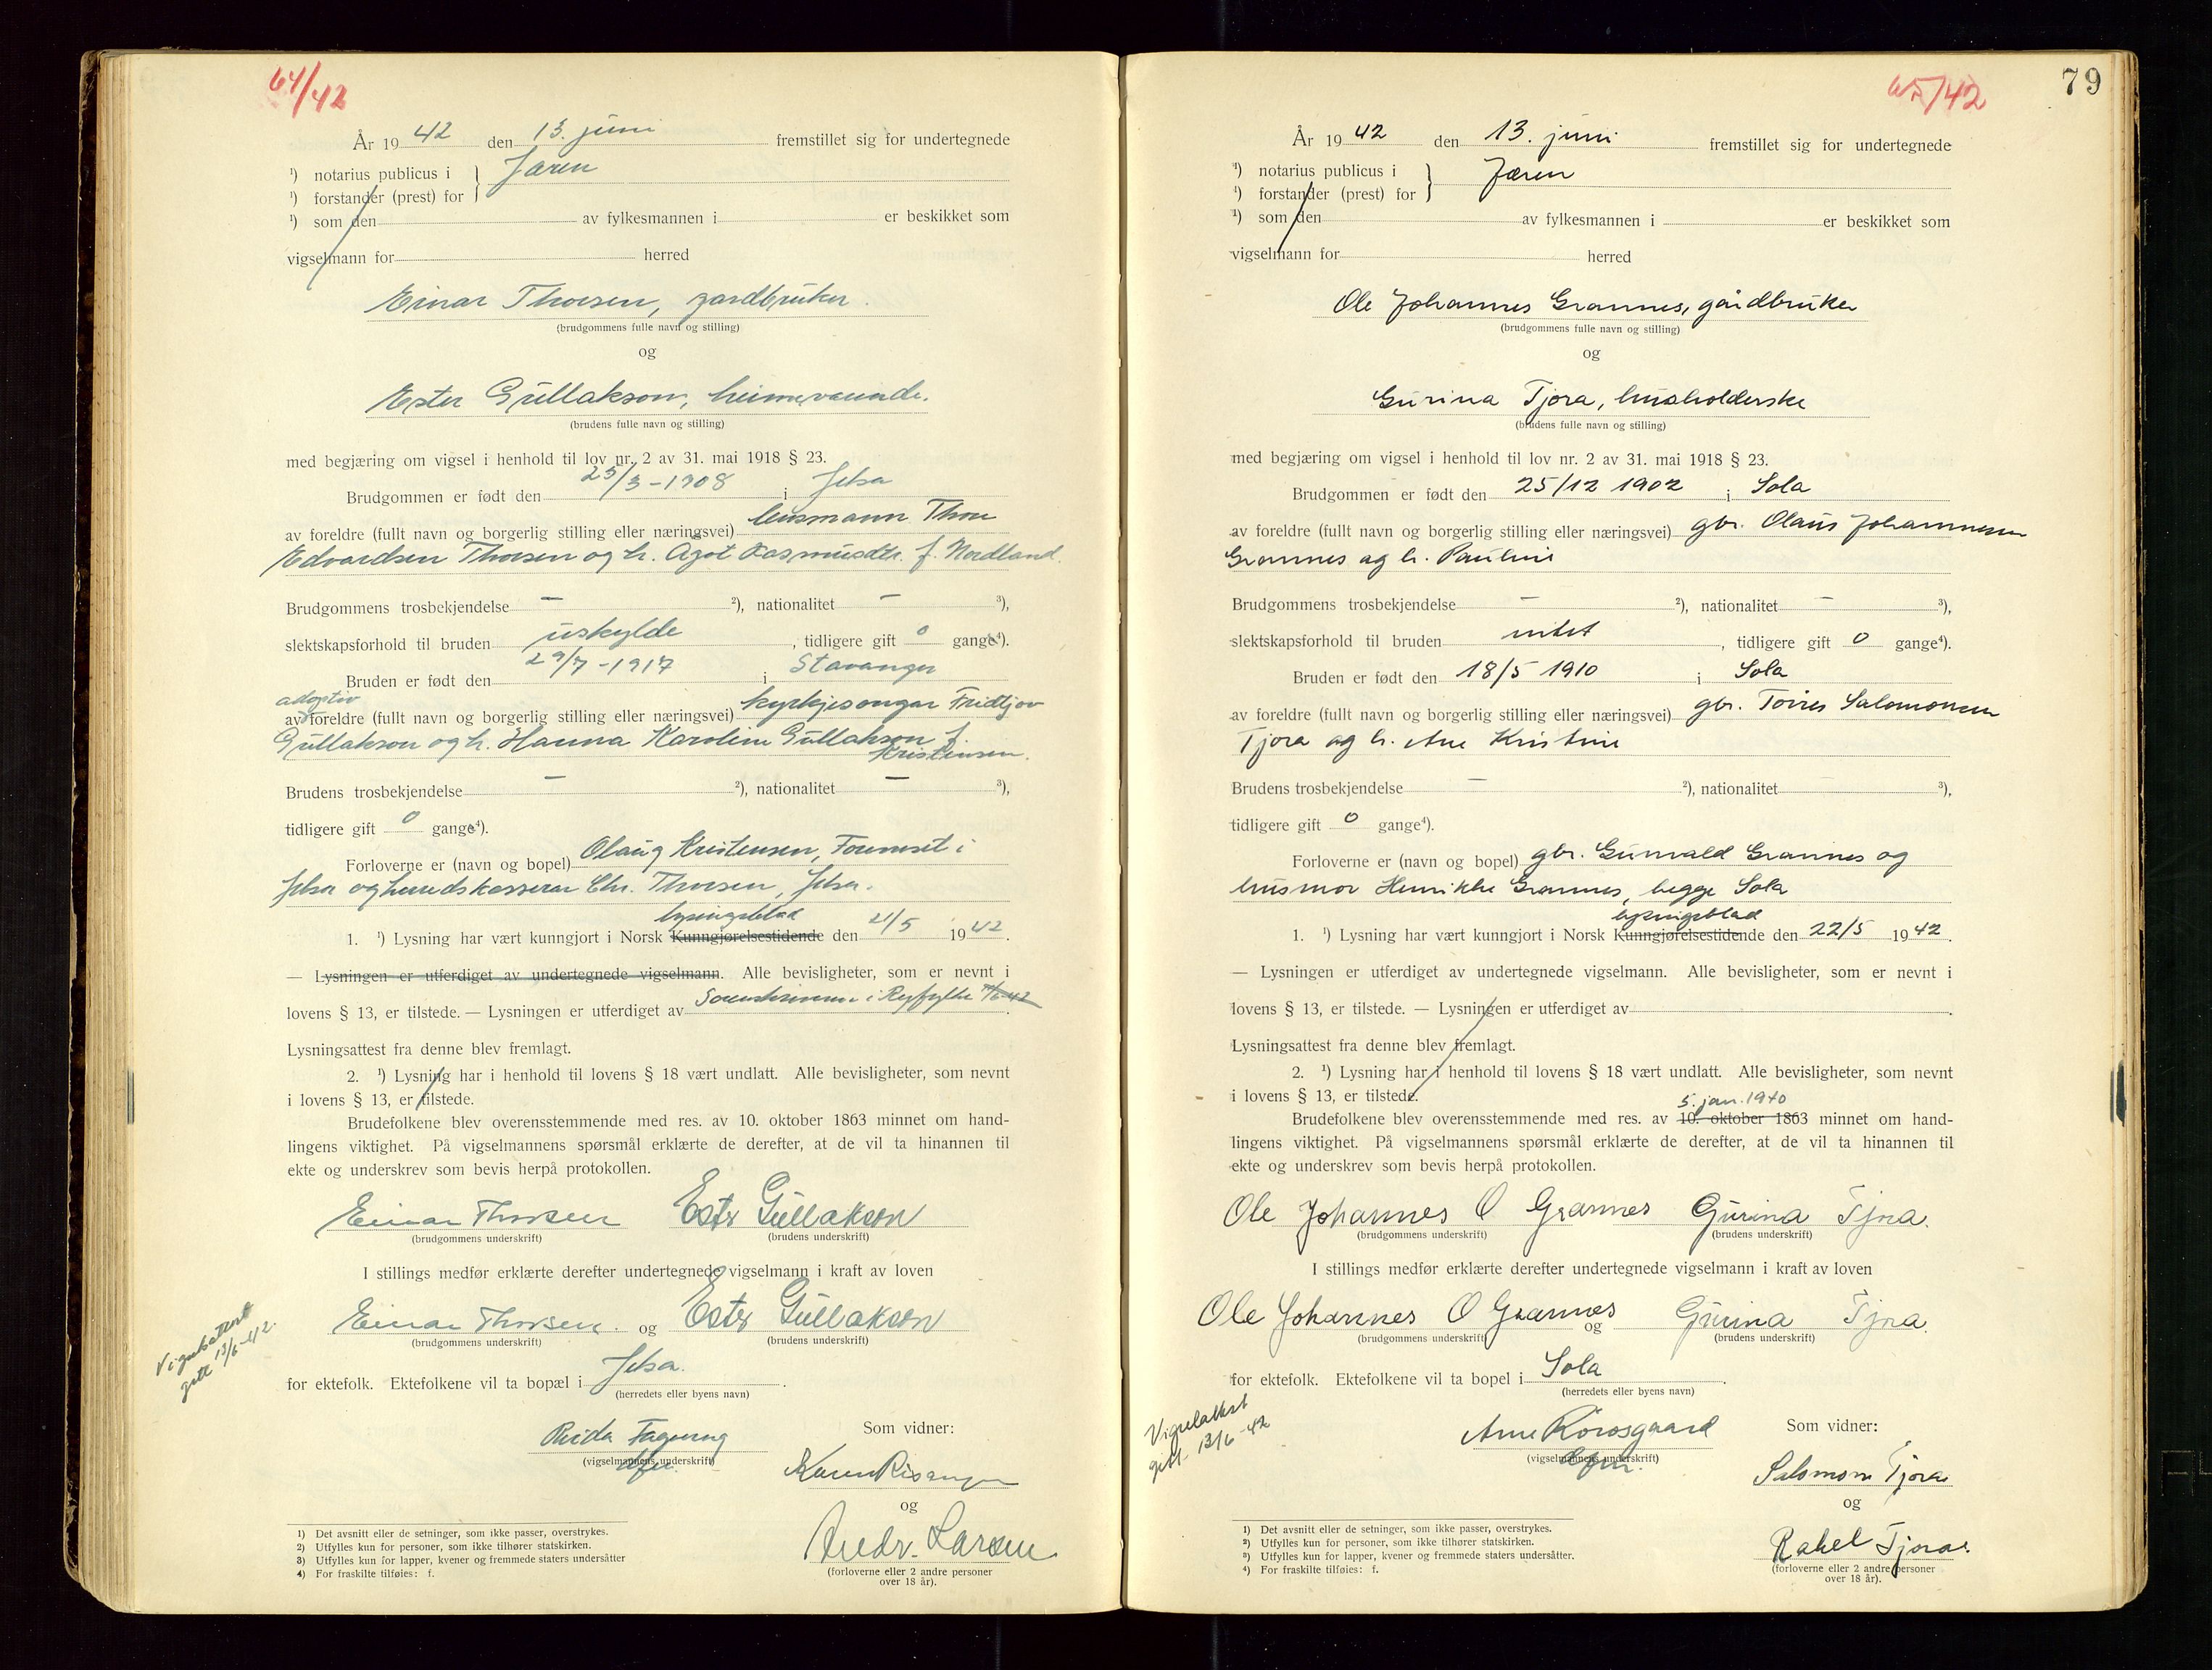 64/42
År 19 42 den 13. juni fremstillet sig for undertegnede
¹) notarius publicus i } Jæren
¹) forstander (prest) for
¹) som den av fylkesmannen i er beskikket som
vigselmann for herred
Einar Thorsen, gardbruker.
(brudgommens fulle navn og stilling)
og
Ester Gullakson, heimeværande.
(brudens fulle navn og stilling)
med begjæring om vigsel i henhold til lov nr. 2 av 31. mai 1918 § 23.
Brudgommen er født den 25/3-1908 i Jelsa
av foreldre (fullt navn og borgerlig stilling eller næringsvei) lensmann Thore
Edvardsen Thorsen og h. Agot Rasmusdtr. f. Nordland.
Brudgommens trosbekjendelse — ²), nationalitet — ³),
slektskapsforhold til bruden uskylde, tidligere gift 0 gange⁴).
Bruden er født den 29/7-1917 i Stavanger
adoptiv
av foreldre (fullt navn og borgerlig stilling eller næringsvei) kyrkjesongar Fridtjov
Gullakson og h. Hanna Karoline Gullakson f.
Kristensen.
Brudens trosbekjendelse — ²), nationalitet — ³),
tidligere gift 0 gange⁴).
Forloverne er (navn og bopel) Olaug Kristensen, Foreneset i
Jelsa og heradskasserar Chr. Thorsen, Jelsa.
lysingsblad
1. ¹) Lysning har vært kunngjort i Norsk Kunngjørelsestidende den 21/5 19 42.
— Lysningen er utferdiget av undertegnede vigselmann. Alle bevisligheter, som er nevnt i
lovens § 13, er tilstede. — Lysningen er utferdiget av Sorenskriveren i Ryfylke
Lysningsattest fra denne blev fremlagt.
2. ¹) Lysning har i henhold til lovens § 18 vært undlatt. Alle bevisligheter, som nevnt
i lovens § 13, er tilstede.
Brudefolkene blev overensstemmende med res. av 10. oktober 1863 minnet om hand-
lingens viktighet. På vigselmannens spørsmål erklærte de derefter, at de vil ta hinannen til
ekte og underskrev som bevis herpå protokollen.
Einar Thorsen Ester Gullakson
(brudgommens underskrift) (brudens underskrift)
I stillings medfør erklærte derefter undertegnede vigselmann i kraft av loven
Einar Thorsen. og Ester Gullakson
(brudgommens underskrift) (brudens underskrift)
Vigselattest
gitt 13/6-42.
for ektefolk. Ektefolkene vil ta bopæl i Jelsa.
(herredets eller byens navn)
Fagerng Som vidner:
(vigselmannens underskrift)
dfm. Karen Risanger
og
Andr. Larsen
(forloverne eller 2 andre personer
over 18 år).
1) Det avsnitt eller de setninger, som ikke passer, overstrykes.
2) Utfylles kun for personer, som ikke tilhører statskirken.
3) Utfylles kun for lapper, kvener og fremmede staters undersåtter
4) For fraskilte tilføies: f.
79
65/42
År 19 42 den 13. juni fremstillet sig for undertegnede
¹) notarius publicus i } Jæren
¹) forstander (prest) for
¹) som den av fylkesmannen i er beskikket som
vigselmann for herred
Ole Johannes Grannes, gårdbruker
(brudgommens fulle navn og stilling)
og
Gurina Tjora, husholderske
(brudens fulle navn og stilling)
med begjæring om vigsel i henhold til lov nr. 2 av 31. mai 1918 § 23.
Brudgommen er født den 25/12 1902 i Sola
av foreldre (fullt navn og borgerlig stilling eller næringsvei) gbr. Olaus Johannesen
Grannes og h. Pauline
Brudgommens trosbekjendelse — ²), nationalitet — ³),
slektskapsforhold til bruden intet, tidligere gift 0 gange⁴).
Bruden er født den 18/5 1910 i Sola
av foreldre (fullt navn og borgerlig stilling eller næringsvei) gbr. Torres Salomonsen
Tjora og h. Ane Kristine
Brudens trosbekjendelse — ²), nationalitet ³),
tidligere gift 0 gange⁴).
Forloverne er (navn og bopel) gbr. Gunvald Grannes og
husmor Henrikke Grannes, begge Sola
lysingsblad
1. ¹) Lysning har vært kunngjort i Norsk Kunngjørelsestidende den 22/5 19 42.
— Lysningen er utferdiget av undertegnede vigselmann. Alle bevisligheter, som er nevnt i
lovens § 13, er tilstede. — Lysningen er utferdiget av
Lysningsattest fra denne blev fremlagt.
2. ¹) Lysning har i henhold til lovens § 18 vært undlatt. Alle bevisligheter, som nevnt
i lovens § 13, er tilstede.
5. jan. 1940
Brudefolkene blev overensstemmende med res. av 10. oktober 1863 minnet om hand-
lingens viktighet. På vigselmannens spørsmål erklærte de derefter, at de vil ta hinannen til
ekte og underskrev som bevis herpå protokollen.
Ole Johannes O Grannes Gurina Tjora.
(brudgommens underskrift) (brudens underskrift)
I stillings medfør erklærte derefter undertegnede vigselmann i kraft av loven
Ole Johannes O Grannes og Gurina Tjora.
(brudgommens underskrift) (brudens underskrift)
for ektefolk. Ektefolkene vil ta bopel i Sola
(herredets eller byens navn)
Vigselattest
gitt 13/6-42
Arne Rorosgaard Som vidner:
(vigselmannens underskrift)
dfm. Salomon Tjora
og
Rakel Tjora.
(forloverne eller 2 andre personer
over 18 år).
1) Det avsnitt eller de setninger, som ikke passer, overstrykes.
2) Utfylles kun for personer, som ikke tilhører statskirken.
3) Utfylles kun for lapper, kvener og fremmede staters undersåtter.
4) For fraskilte tilføies: f.